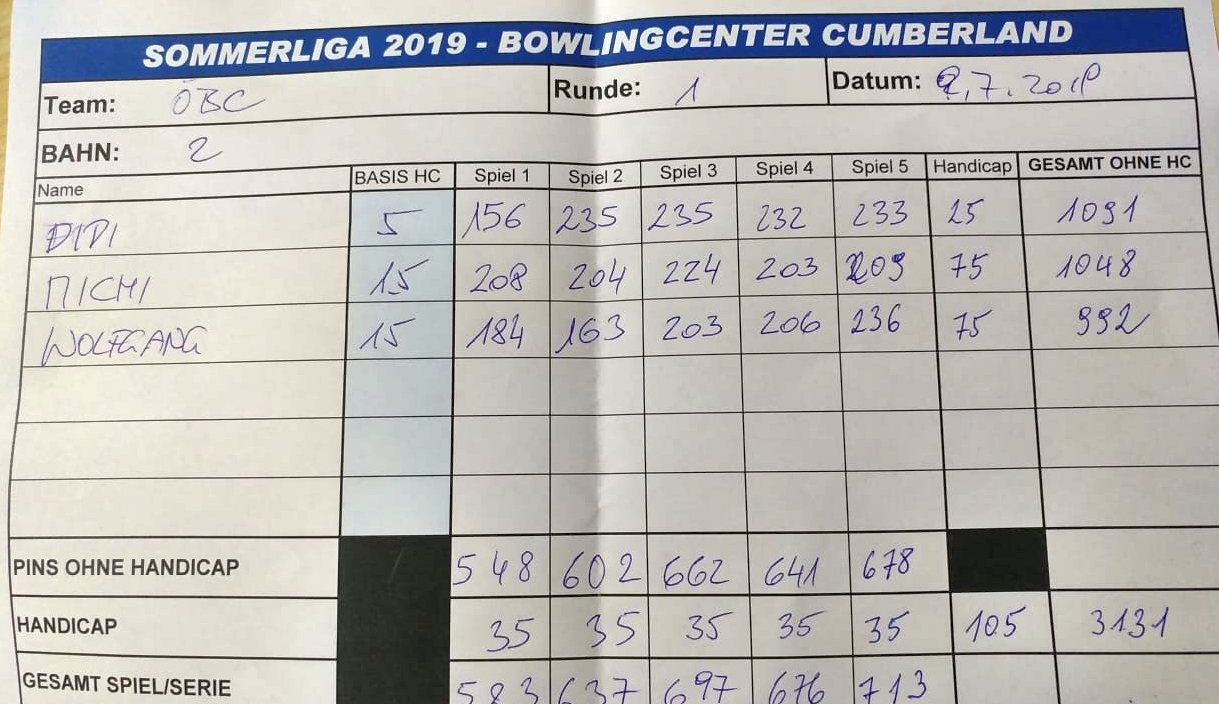 SOMMERLIGA 2019 - BOWLINGCENTER CUMBERLAND
Team: ÖBC Runde: 1 Datum: 2.7.2019
BAHN: 2
Name BASIS HC Spiel 1 Spiel 2 Spiel 3 Spiel 4 Spiel 5 Handicap GESAMT OHNE HC
DIDI 5 156 235 235 232 233 25 1091
MICHI 15 208 204 224 203 209 75 1048
WOLFGANG 15 184 163 203 206 236 75 992
PINS OHNE HANDICAP 548 602 662 641 678
HANDICAP 35 35 35 35 35 105 3131
GESAMT SPIEL/SERIE 583 637 697 676 713